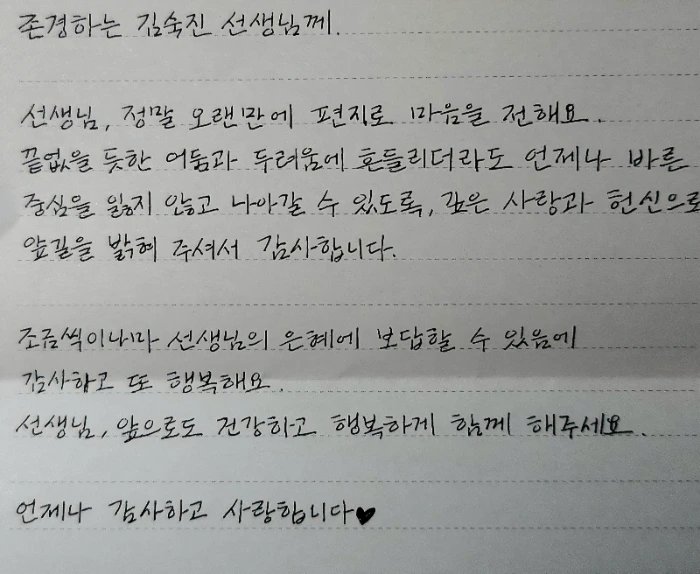 존경하는 김숙진 선생님께.
선생님, 정말 오랜만에 편지로 마음을 전해요.
끝없을 듯한 어둠과 두려움에 흔들리더라도 언제나 바른
중심을 잃지 않고 나아갈 수 있도록, 깊은 사랑과 헌신으로
앞길을 밝혀 주셔서 감사합니다.
조금씩이나마 선생님의 은혜에 보답할 수 있음에
감사하고 또 행복해요.
선생님, 앞으로도 건강하고 행복하게 함께 해주세요.
언제나 감사하고 사랑합니다♥